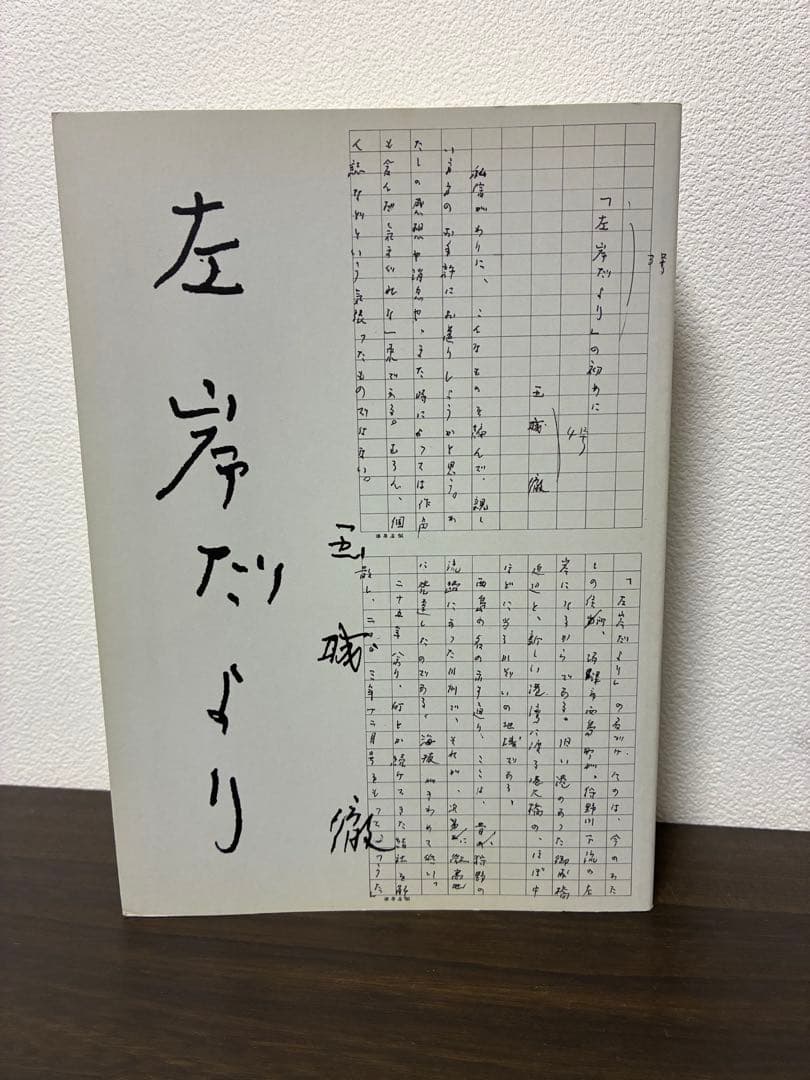 左岸だより
玉城徹
3号
「左岸だより」の初めに
4号
玉城徹
私信がわりに、こんなものを編んで、親し
い方々のお手許にお送りしようかと思う。わ
たしの感想や消息や、また時によっては作品
も含んだ気まぐれな一束である。むろん、個
人誌などという気張ったものではない。
「左岸だより」の名づけ、そのは、今のわた
しの住所、沼津市西島町が、狩野川下流の左
岸になるからである。旧い港のあった御成橋
近辺と、新しい港湾に渡る港大橋の、ほぼ中
ほどに当るかどいの地域である。
西島の名の示す通り、ここは、昔の狩野の
流路にあった川洲で、それが、次第に微高地
に発達したのである。海抜
二十五年
散し、二